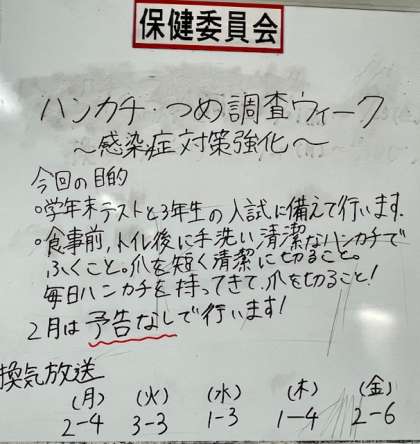 保健委員会
ハンカチ・つめ調査ウィーク
～感染症対策強化～
今回の目的
○学年末テストと3年生の入試に備えて行います.
○食事前,トイレ後に手洗い清潔なハンカチで
ふくこと。爪を短く清潔に切ること。
毎日ハンカチを持ってきて,爪を切ること!
2月は予告なしで行います!
換気放送
(月) (火) (水) (木) (金)
2-4 3-3 1-3 1-4 2-6